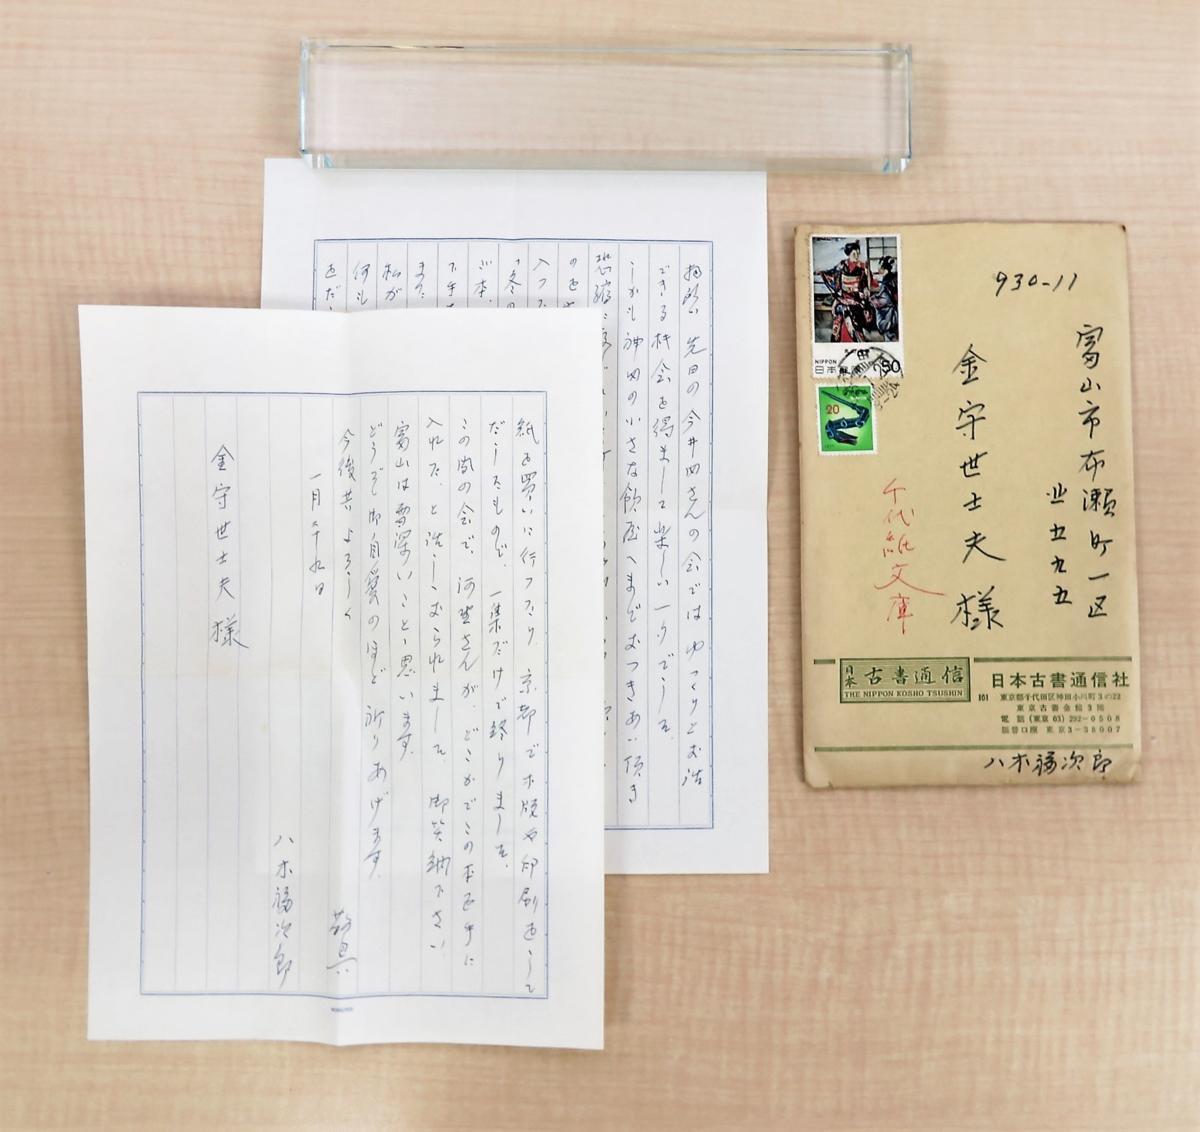 拝啓 先日の今井田さんの会ではゆっくりとお話
できる機会を得まして楽しい一夕でした。
しかも神田の小さな飲屋へまでおつきあい頂き
恐縮
のを
入った
「冬の
本、
下手
また
私が
何も
紙を買いに行ったり、京都で木版や印刷をして
だしたもので、一集だけで終りました。
この間の会で、河野さんが、どこかでこの本を手に
入れた、と話しておられました。御笑納下さい
富山は雪深いことと思います。
どうぞ御自愛のほど祈りあげます。
今後共よろしく
敬具
一月二十九日
八木福次郎
金守世士夫様
930-11
富山市布瀬町一区
五九五
金守世士夫様
千代紙文庫
NIPPON
日本郵便
50
20
日本古書通信
THE NIPPON KOSHO TSUSHIN
日本古書通信社
101 東京都千代田区神田小川町3の22
東京古書会館3階
電話(東京03)292-0508
振替口座 東京3-38007
八木福次郎